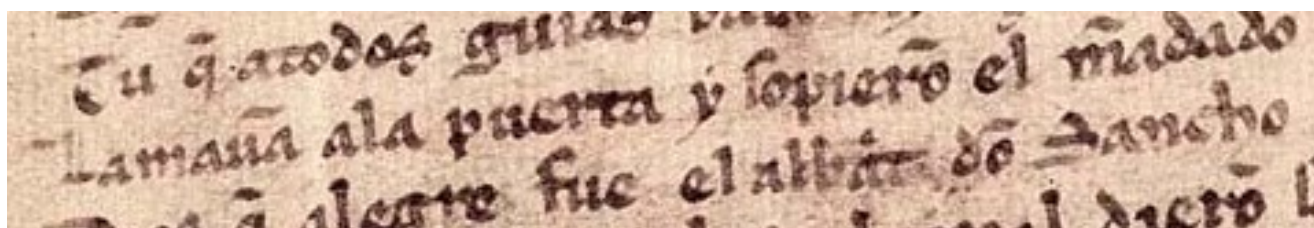 Tu q̃ atodos guias
Lamauã ala puerta y sopierõ el mãdado
q̃ alegre fue el abbat dõ Sancho
dierõ